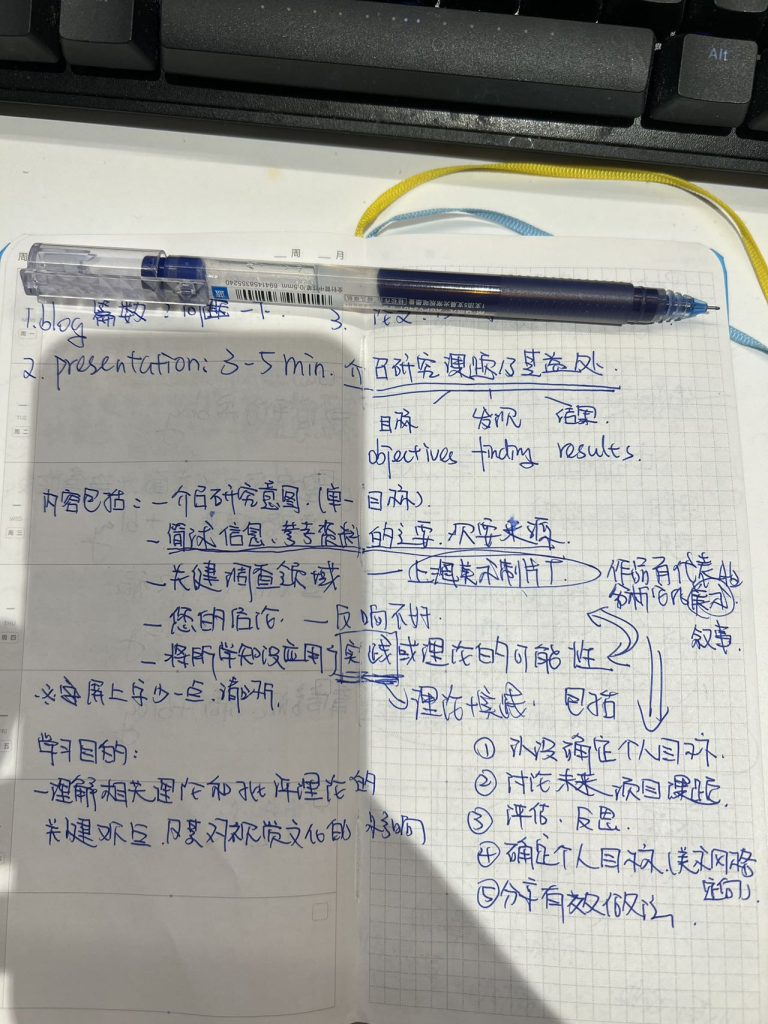 Alt
周 月
1. blog 篇数？问题一下. 3.
2. presentation: 3-5 min. 介绍研究课题的其益处.
目标 发现 结果.
objectives finding results.
内容包括: - 介绍研究意图. (单一目标).
- 简述信息、参考资料的主要.次要来源.
- 关键调查领域 — 上 美术制片厂 作品有代表性
分析它的 展示
叙事.
- 您的启发. — 反响不好.
- 将所学知识应用于实践或理论的可能性
※字屏上字少一点 清晰.
理论+实践. 包括
学习目的:
- 理解相关理论和批评理论的
关键观点 及其对视觉文化的影响
① 确定个人目标.
② 讨论未来 项目课题.
③ 评估、反思.
④ 确定个人目标. (美术风格
定向).
⑤ 分享有效做法.